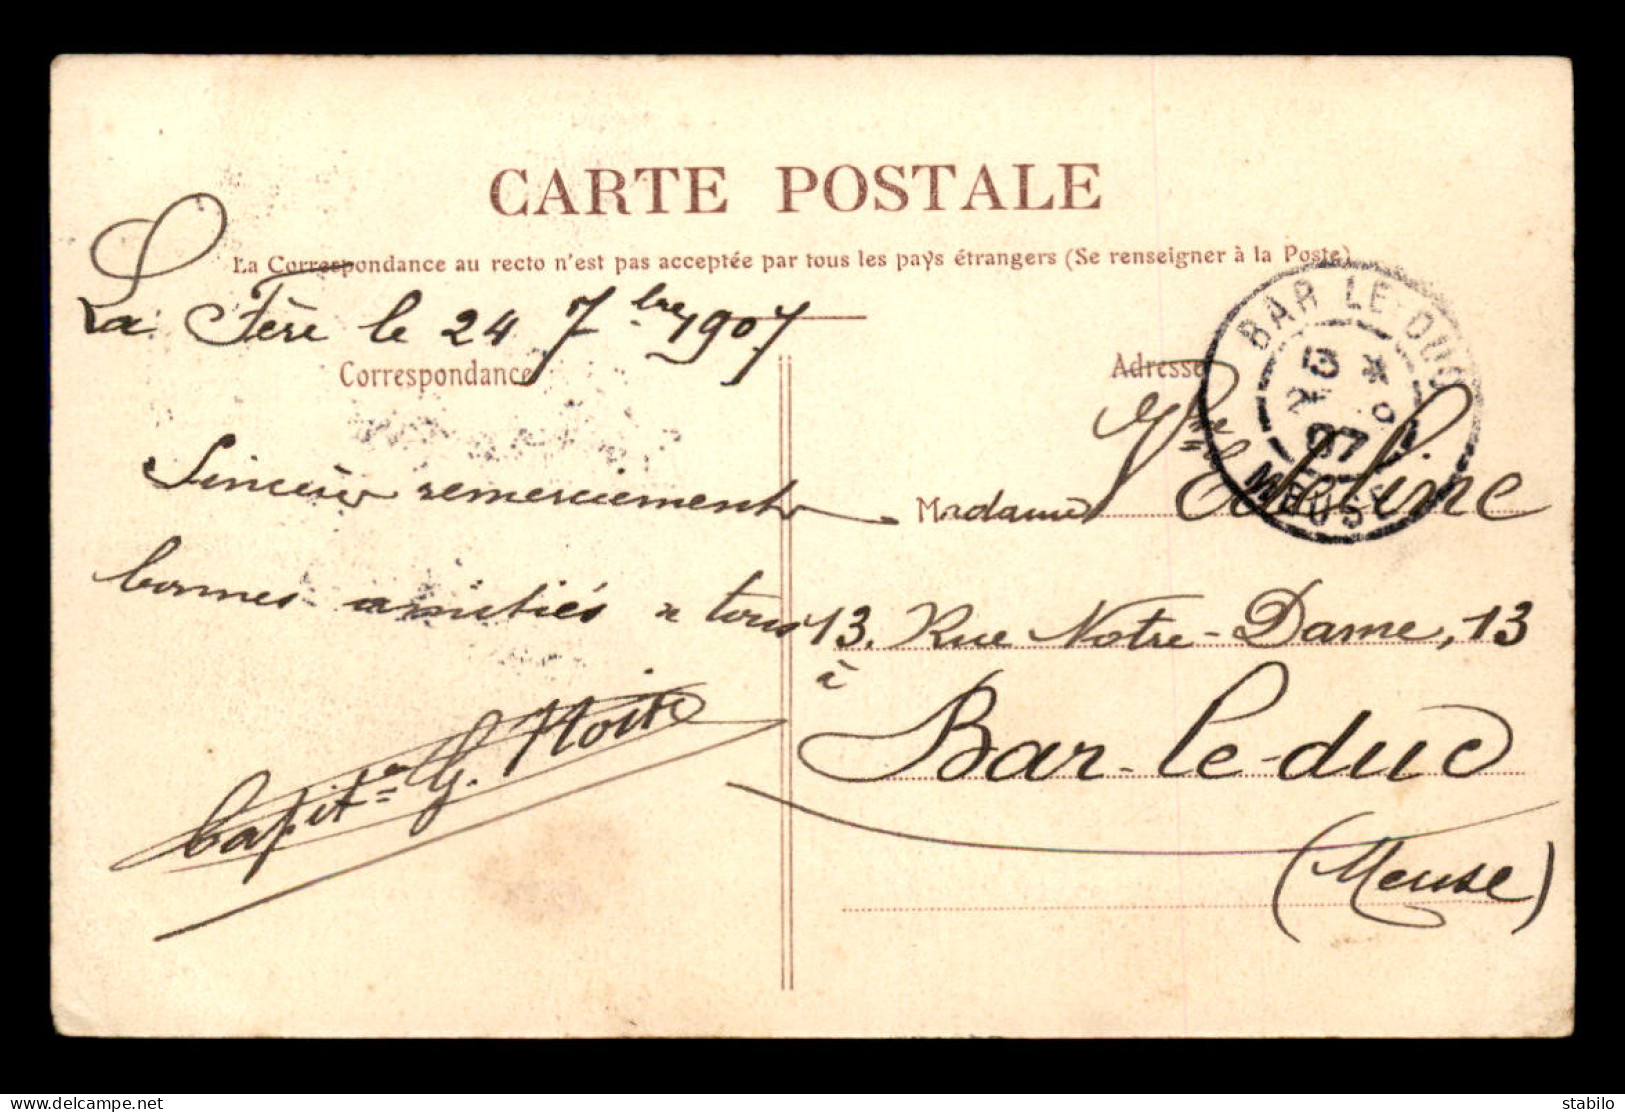 CARTE POSTALE
La Correspondance au recto n'est pas acceptée par tous les pays étrangers (Se renseigner à la Poste)
La Fère le 24 7bre 1907
Correspondance
Sincères remerciements
bonnes amitiés à tous
Capit.ne G.
Adresse
BAR LE DUC
07
MEUSE
Madame
13, Rue Notre-Dame, 13
à
Bar-le-duc
(Meuse)
delcampe.net
stabilo